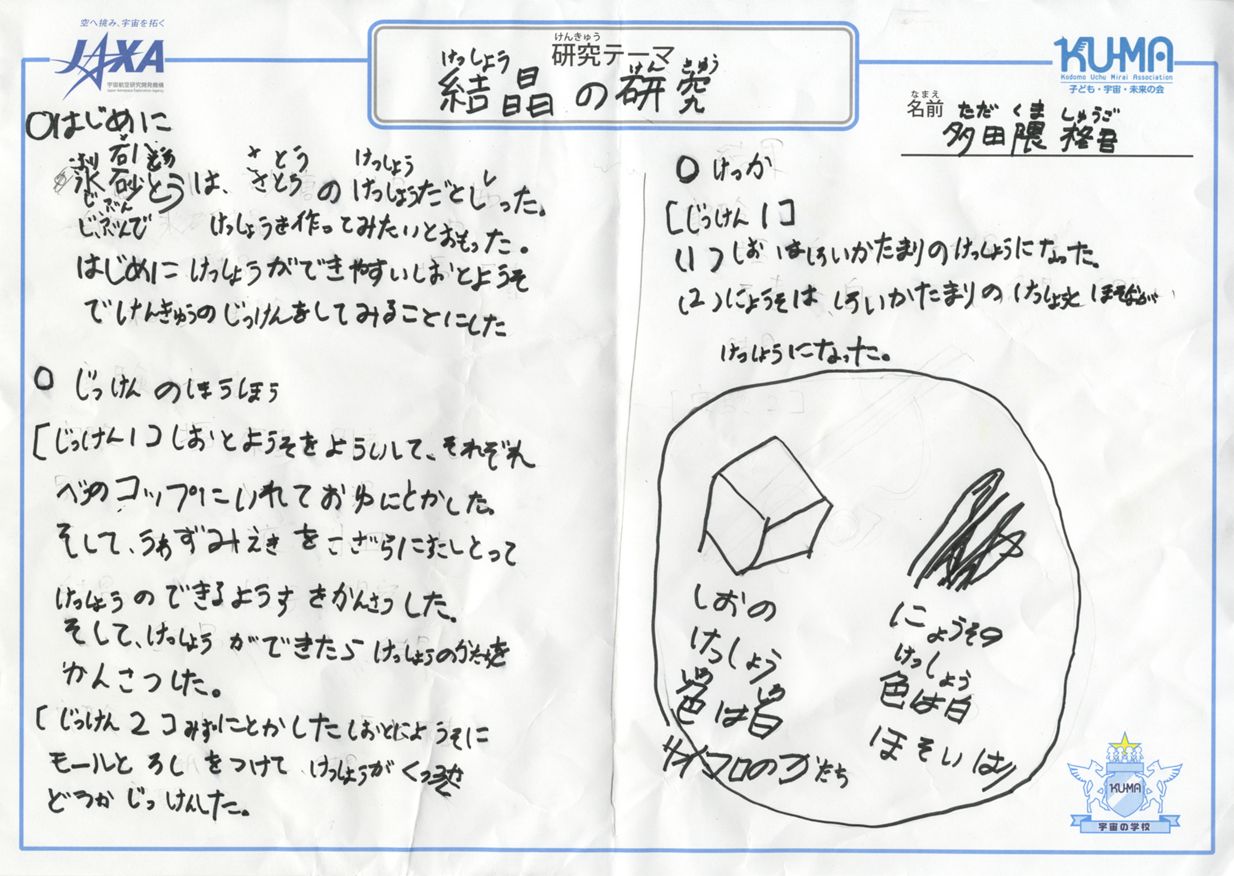 空へ挑み、宇宙を拓く
JAXA
宇宙航空研究開発機構
Japan Aerospace Exploration Agency
けんきゅう
研究テーマ
けっしょう けんきゅう
結晶の研究
KU-MA
Kodomo Uchu Mirai Association
子ども・宇宙・未来の会
なまえ
名前
ただ くま しゅうご
多田隈
〇はじめに
氷砂とうは、さとうのけっしょうだとしった。
じぶんで けっしょうを作ってみたいとおもった。
はじめにけっしょうができやすいしおとようそ
でけんきゅうのじっけんをしてみることにした
〇 じっけんのほうほう
[じっけん1]しおとようそをよういして、それぞれ
べつのコップにいれておゆにとかした。
そして、うわずみえきをこざらにたしとって
けっしょうのできるようすをかんさつした。
そして、けっしょうができたらけっしょうのかたちを
かんさつした。
[じっけん2]みずにとかしたしおとにょうそに
モールとろしをつけて、けっしょうがくっつき
どうかじっけんした。
〇 けっか
[じっけん1]
(1)しおはしろいかたまりのけっしょうになった。
(2)にょうそは、しろいかたまりのけっしょうと ほそながい
けっしょうになった。
しおの
けっしょう
いろ しろ
色は白
サイコロのかたち
にょうその
けっしょう
色は白
ほそいはり
KUMA
宇宙の学校